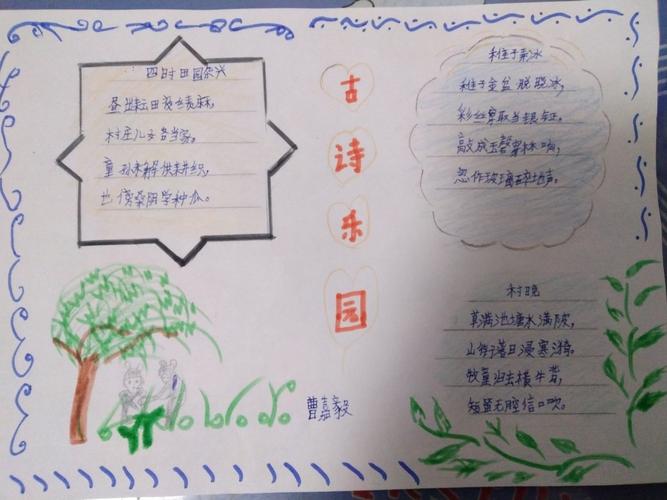 四时田园杂兴
昼出耘田夜绩麻,
村庄儿女各当家。
童孙未解供耕织,
也傍桑阴学种瓜。
古
诗
乐
园
稚子弄冰
稚子金盆脱晓冰,
彩丝穿取当银钲。
敲成玉磬穿林响,
忽作玻璃碎地声。
村晚
草满池塘水满陂,
山衔落日浸寒漪。
牧童归去横牛背,
短笛无腔信口吹。
曹嘉毅